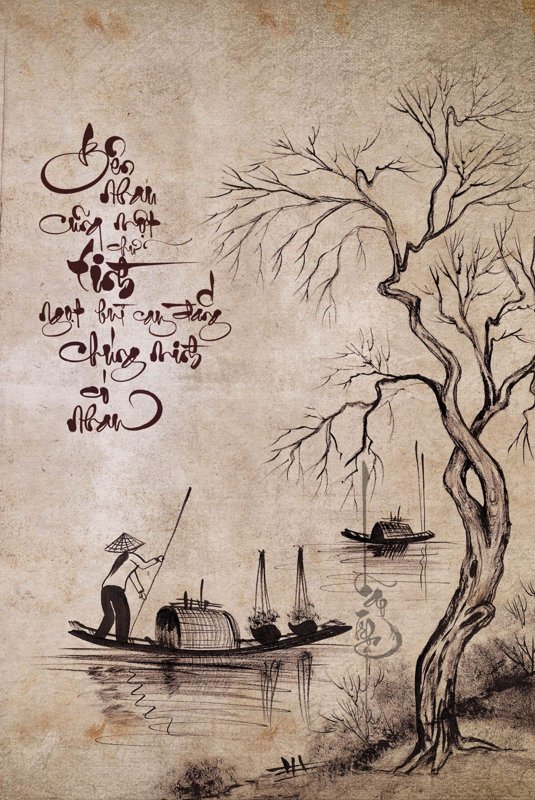 Bên
nhau
cũng một
chữ
tình
ngọt bùi cay đắng
chúng mình
có
nhau